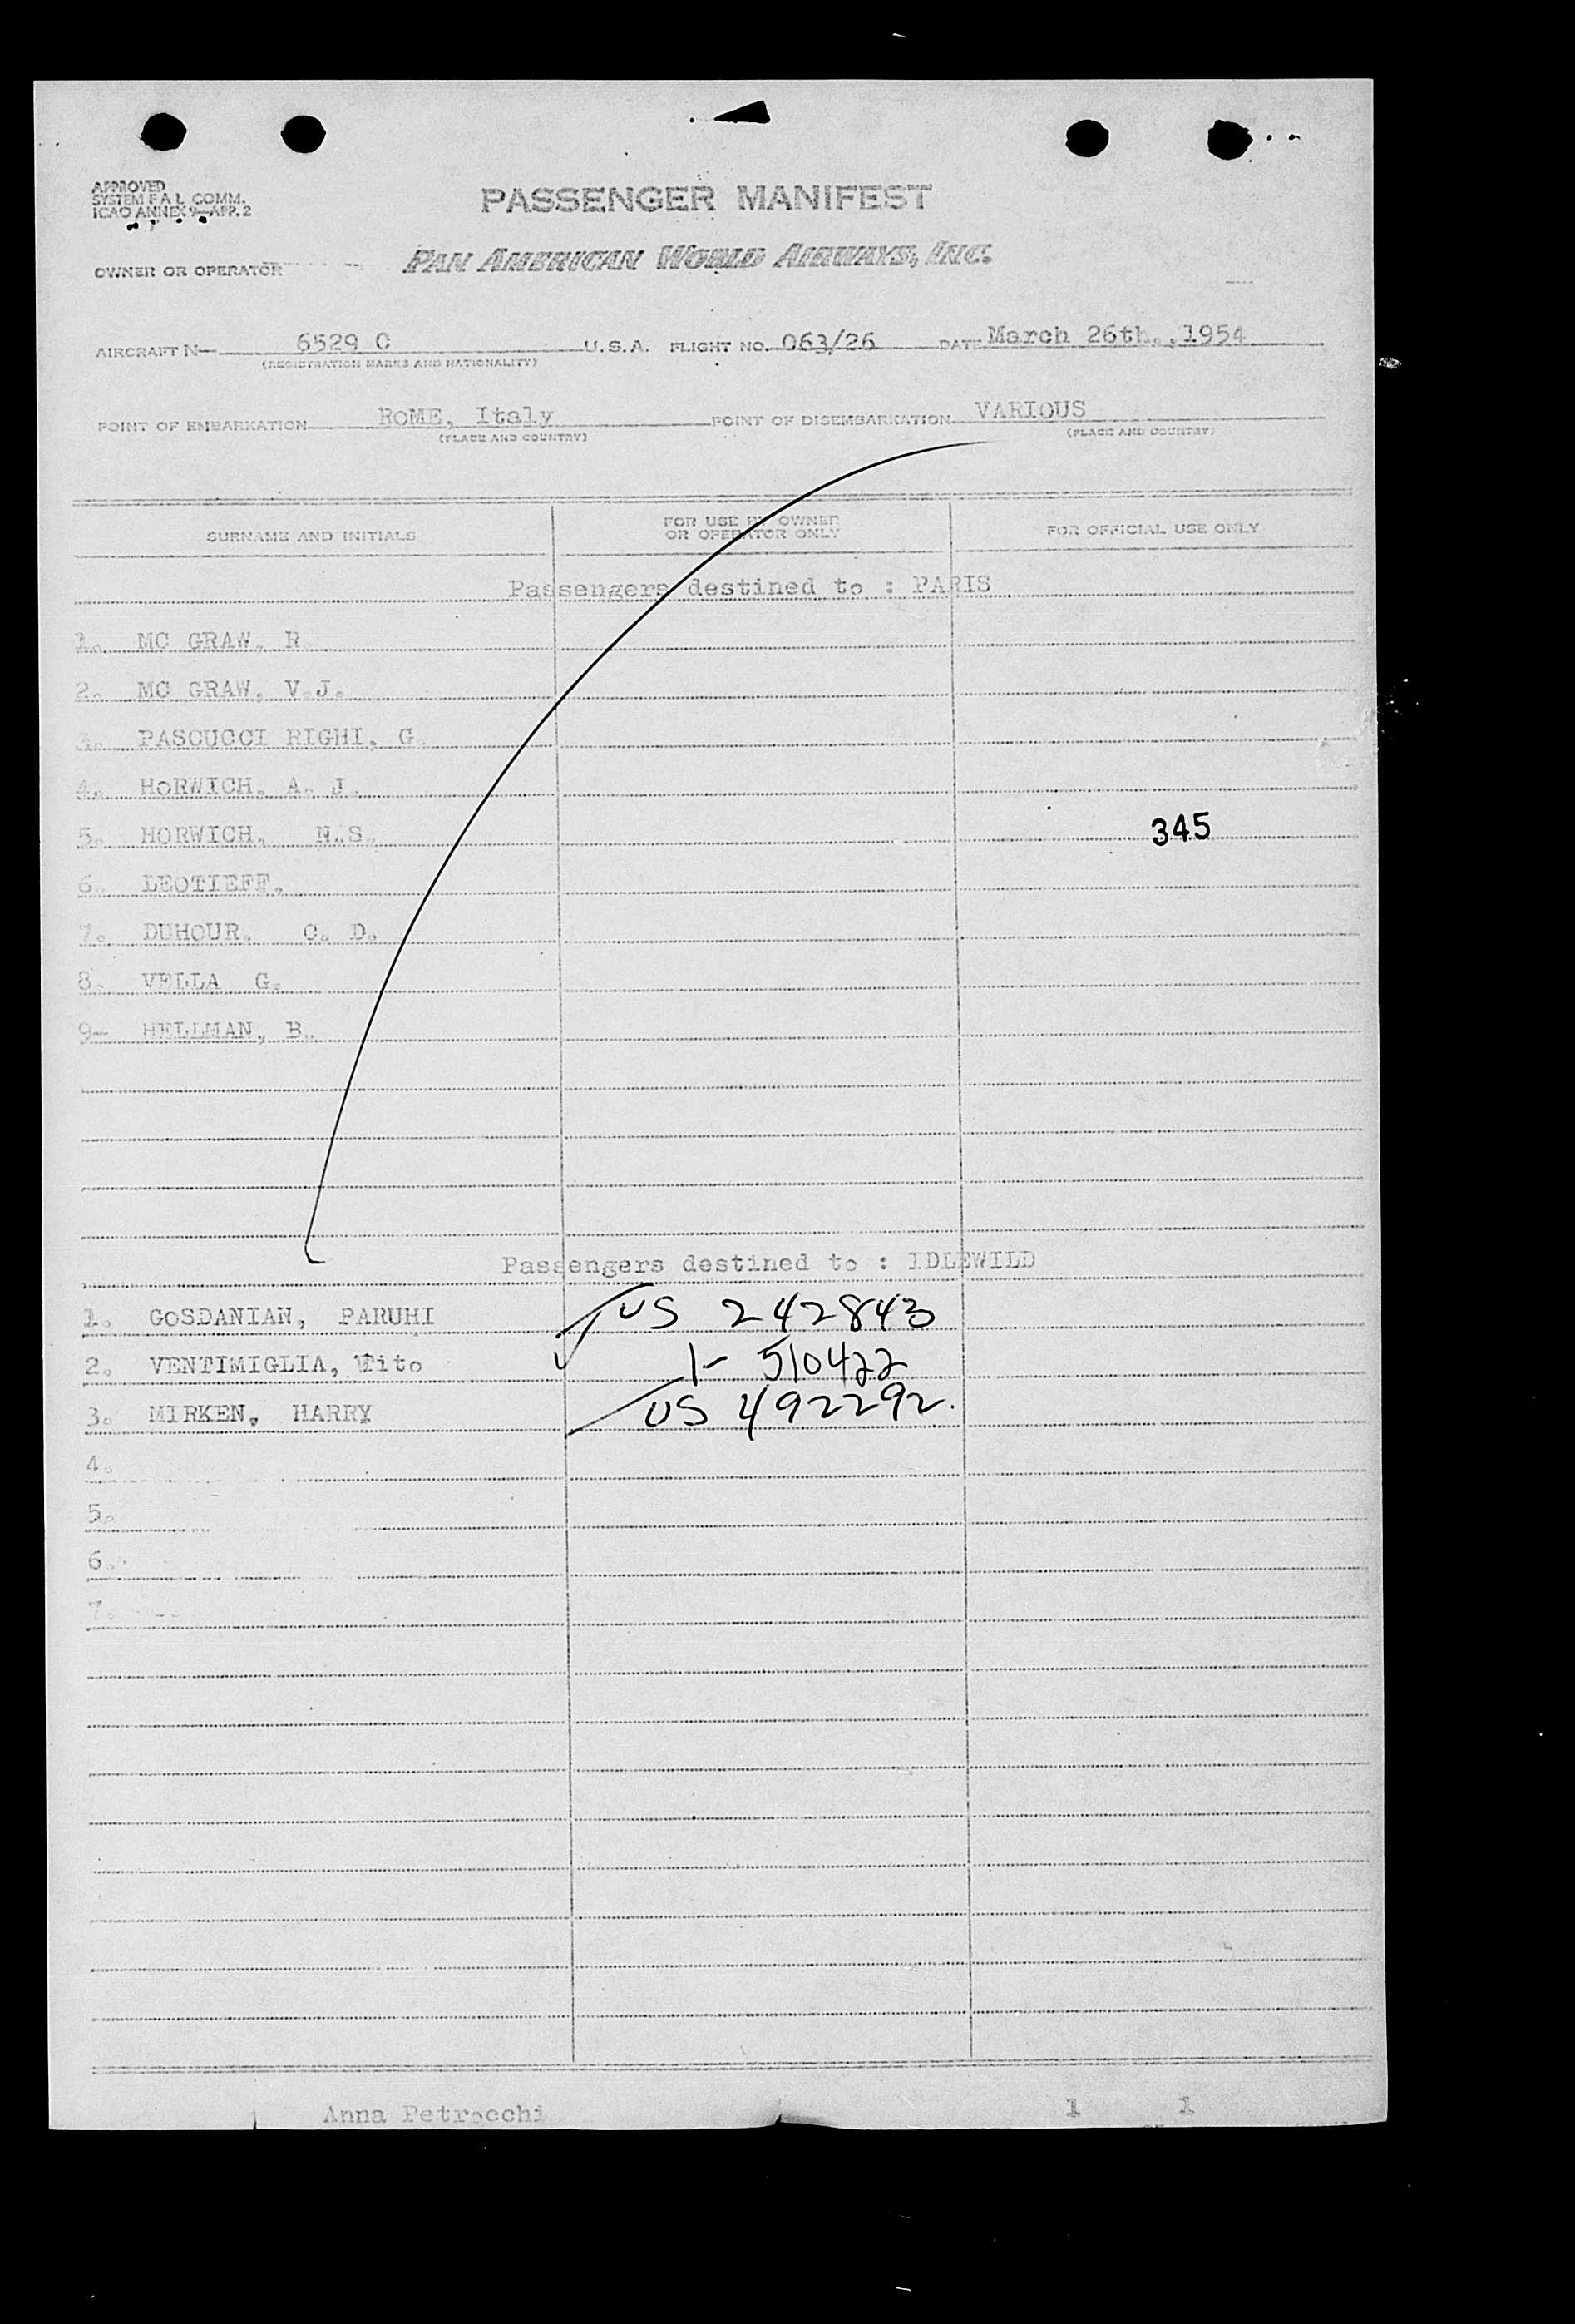 APPROVED
SYSTEM F A L COMM.
ICAO ANNEX 9—APP. 2
PASSENGER MANIFEST
OWNER OR OPERATOR PAN AMERICAN WORLD AIRWAYS, INC.
AIRCRAFT N— 6529 C U.S.A. FLIGHT NO. 063/26 DATE March 26th.,1954
(REGISTRATION MARKS AND NATIONALITY)
POINT OF EMBARKATION ROME, Italy POINT OF DISEMBARKATION VARIOUS
(PLACE AND COUNTRY) (PLACE AND COUNTRY)
SURNAME AND INITIALS FOR USE BY OWNER OR OPERATOR ONLY FOR OFFICIAL USE ONLY
Passengers destined to : PARIS
1. MC GRAW, R.
2. MC GRAW, V.J.
3. PASCUCCI RIGHI, G.
4. HORWICH, A. J.
5. HORWICH, N.S. 345
6. LEOTIEFF,
7. DUHOUR, C. D.
8. VELLA G.
9- HELLMAN, B.
Passengers destined to : IDLEWILD
1. GOSDANIAN, PARUHI US 242843
2. VENTIMIGLIA, Tito 1- 510422
3. MIRKEN, HARRY US 492292.
4.
5.
6.
7.
Anna Petrocchi 1 1